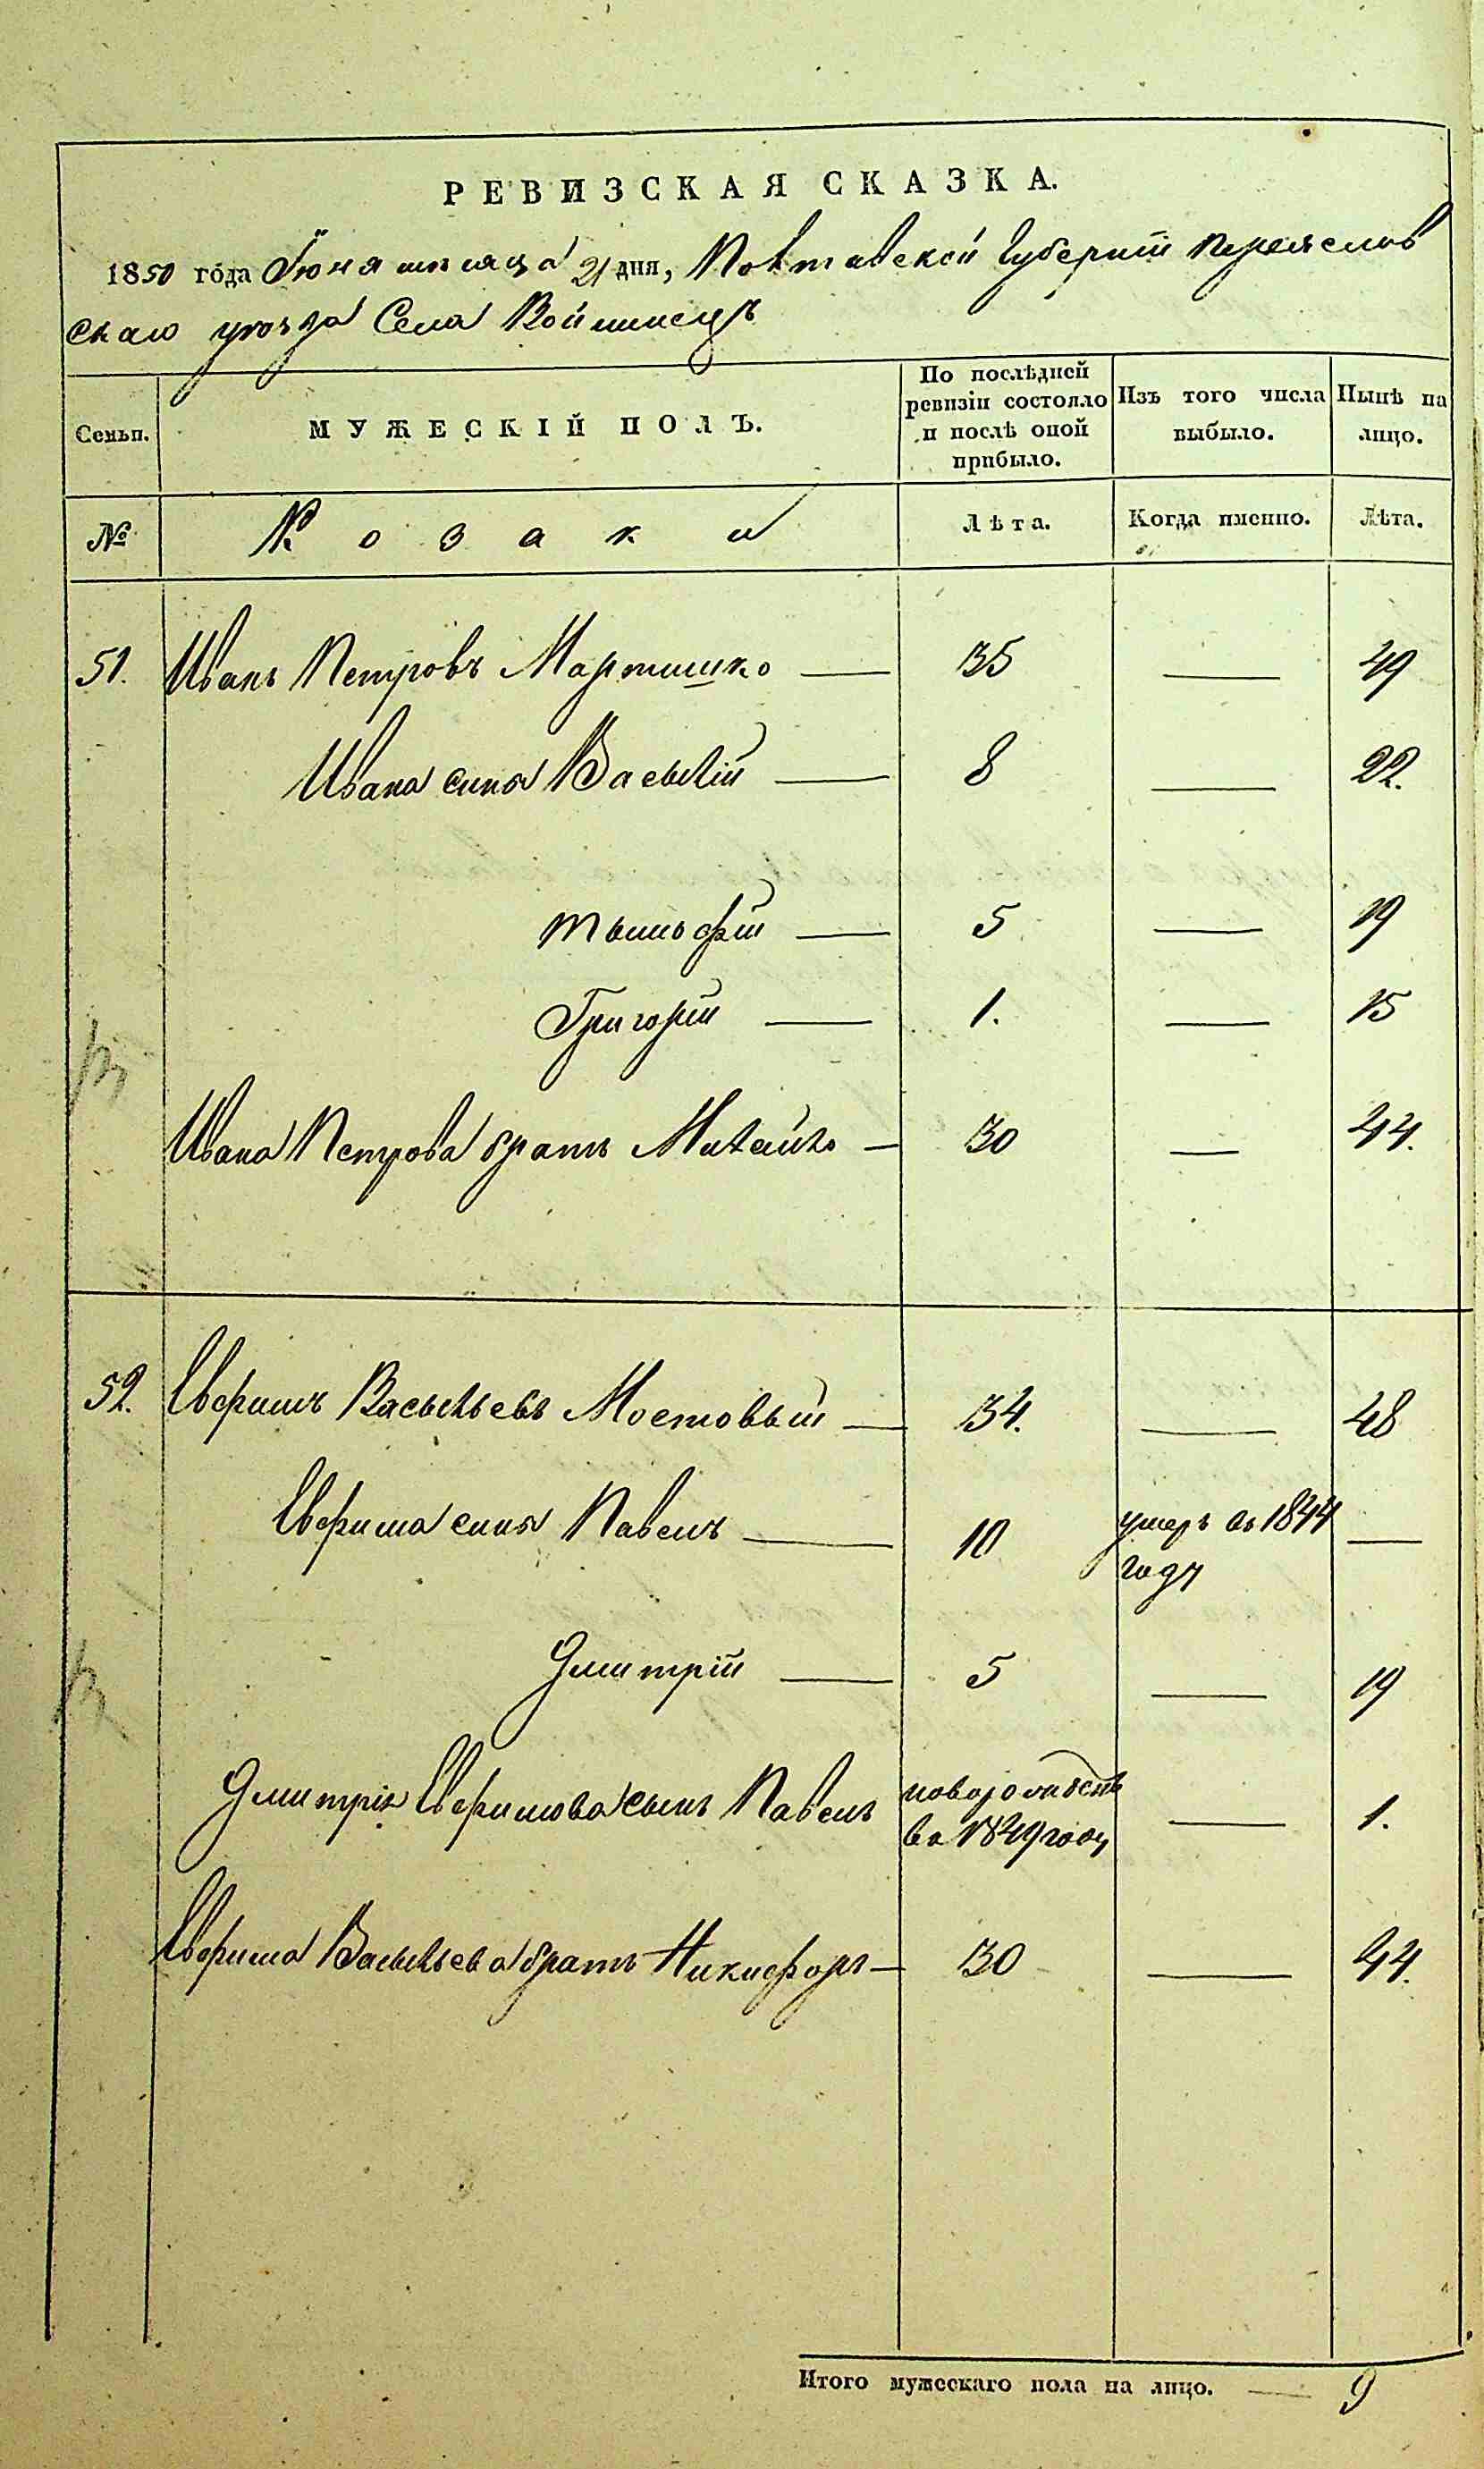 РЕВИЗСКАЯ СКАЗКА.
1850 года Іюня мѣсяца 21 дня, Полтавской Губерніи Переяслов
скаго уѣзда Села Войтинецъ
Семьи. МУЖЕСКІЙ ПОЛЪ. По послѣдней ревизіи состояло и послѣ оной прибыло. Изъ того числа выбыло. Нынѣ на лицо.
№ Козаки Лѣта. Когда именно. Лѣта.
51. Иванъ Петровъ Мартишко — 35 — 49
Ивана сыны Васылій — 8 — 22.
Тымофій — 5 — 19
Григорій — 1. — 15
Ивана Петрова братъ Михайло — 30 — 44.
52. Ефримъ Васыльевъ Мостовый — 34. — 48
Ефрима сыны Павелъ — 10 умеръ въ 1844 —
году
Дмитрій — 5 — 19
Дмитрія Ефримова сынъ Павелъ новорожденъ — 1.
въ 1849 году
Ефрима Васыльева братъ Никифоръ — 30 — 44.
Итого мужескаго пола на лицо. — 9